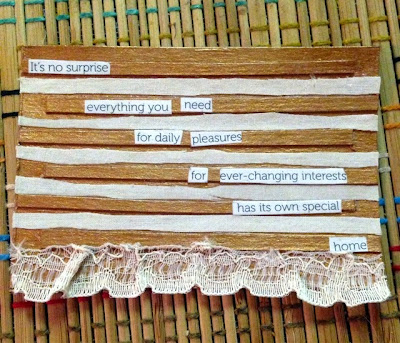 It's no surprise
everything you need
for daily pleasures
for ever-changing interests
has its own special
home